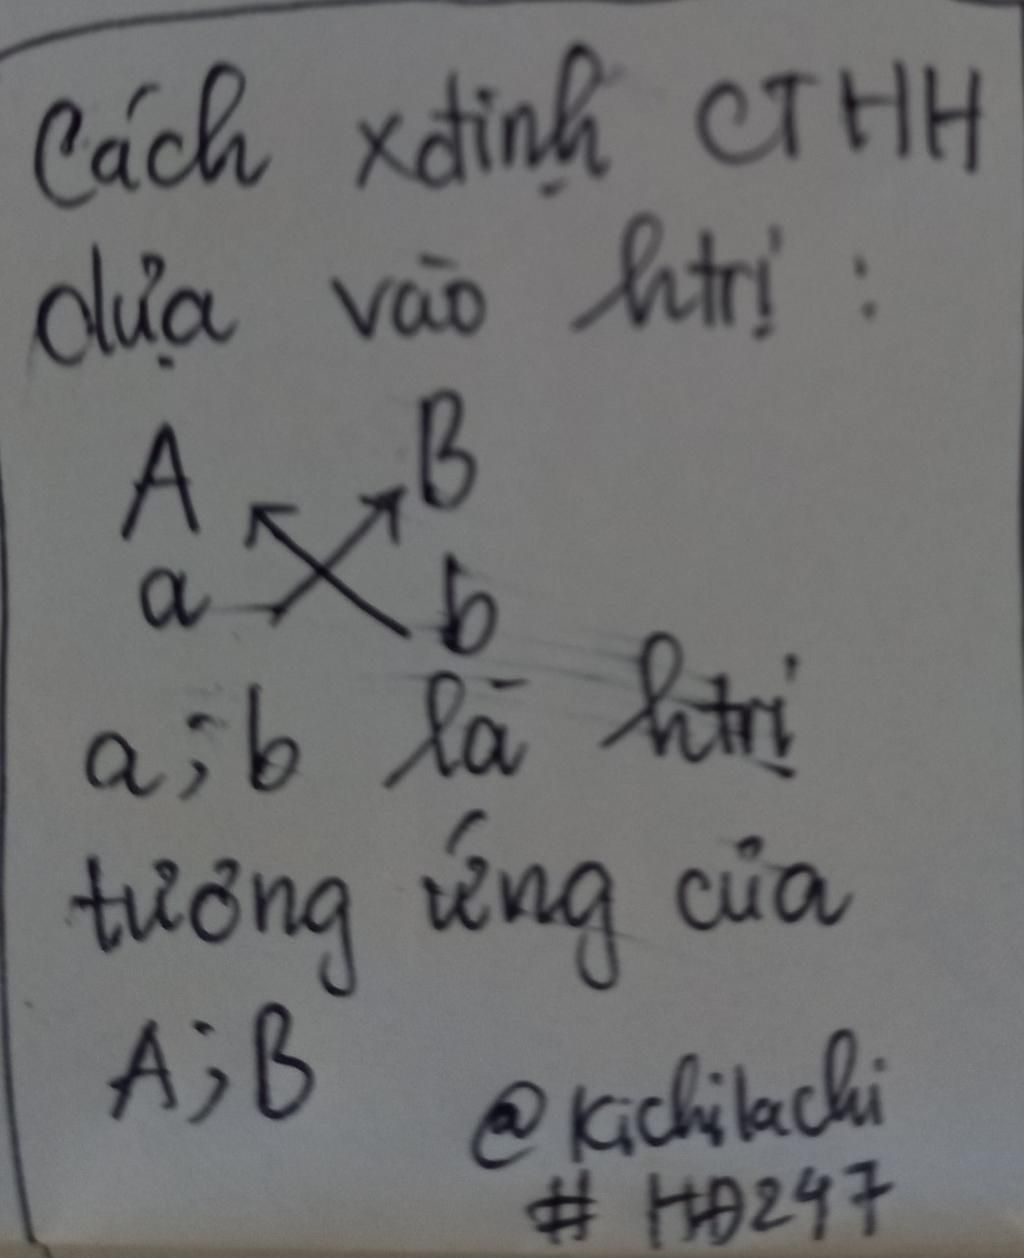 Cách xđịnh CTHH
dựa vào htrị :
A B
a b
a; b là htrị
tương ứng của
A; B
@ Kichilachi
# HĐ247